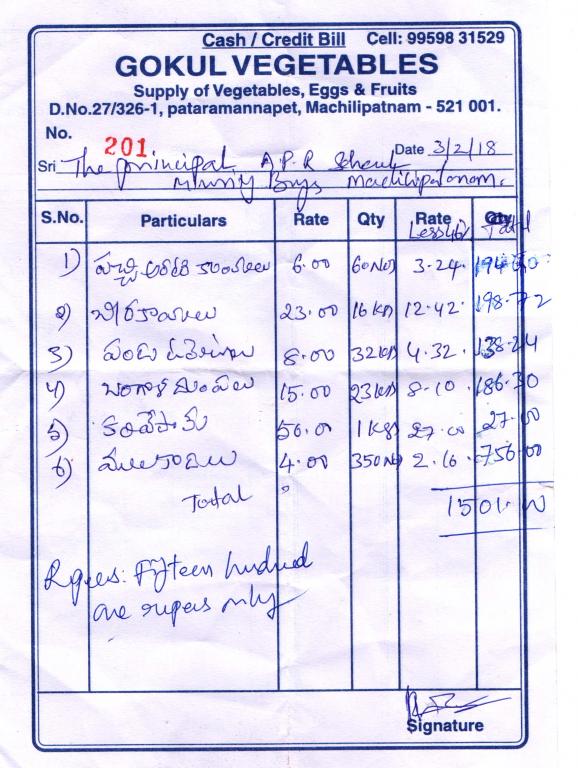 Cash / Credit Bill Cell: 99598 31529
GOKUL VEGETABLES
Supply of Vegetables, Eggs & Fruits
D.No.27/326-1, pataramannapet, Machilipatnam - 521 001.
No. 201
Date 3/2/18
Sri The principal, A.P.R
Boys
S.No. Particulars Rate Qty Rate Qty
Total
1) పచ్చి అరటి కాయలు 6.00 60 3.24 194.40
2) బీరకాయలు 23.00 16 KG 12.42 198.72
3) పండు 8.00 32 KG 4.32 138.24
4) బంగాళదుంపలు 15.00 23 KG 8.10 186.30
5) కరివేపాకు 50.00 1 Kg 27.00 27.00
6) ములకాడలు 4.00 350 2.16 756.00
Total 1501.00
Rupees: Fifteen hundred
one rupees only
Signature